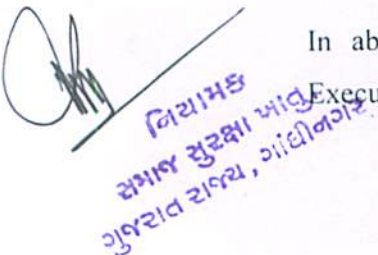 In ab
Execu
નિયામક
સમાજ સુરક્ષા ખાતુ
ગુજરાત રાજ્ય, ગાંધીનગર